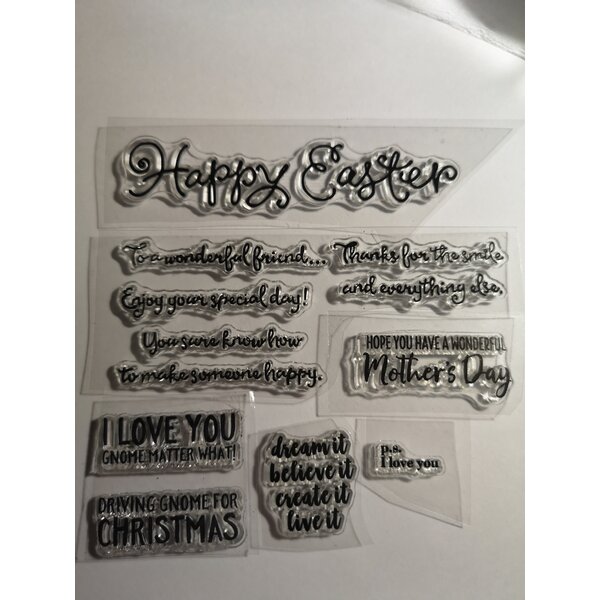 Happy Easter
To a wonderful friend...
Thanks for the smile
and everything else.
Enjoy your special day!
You sure know how
to make someone happy.
HOPE YOU HAVE A WONDERFUL
Mother's Day
I LOVE YOU,
GNOME MATTER WHAT!
DRIVING GNOME FOR
CHRISTMAS
dream it
believe it
create it
live it
p.s.
I love you